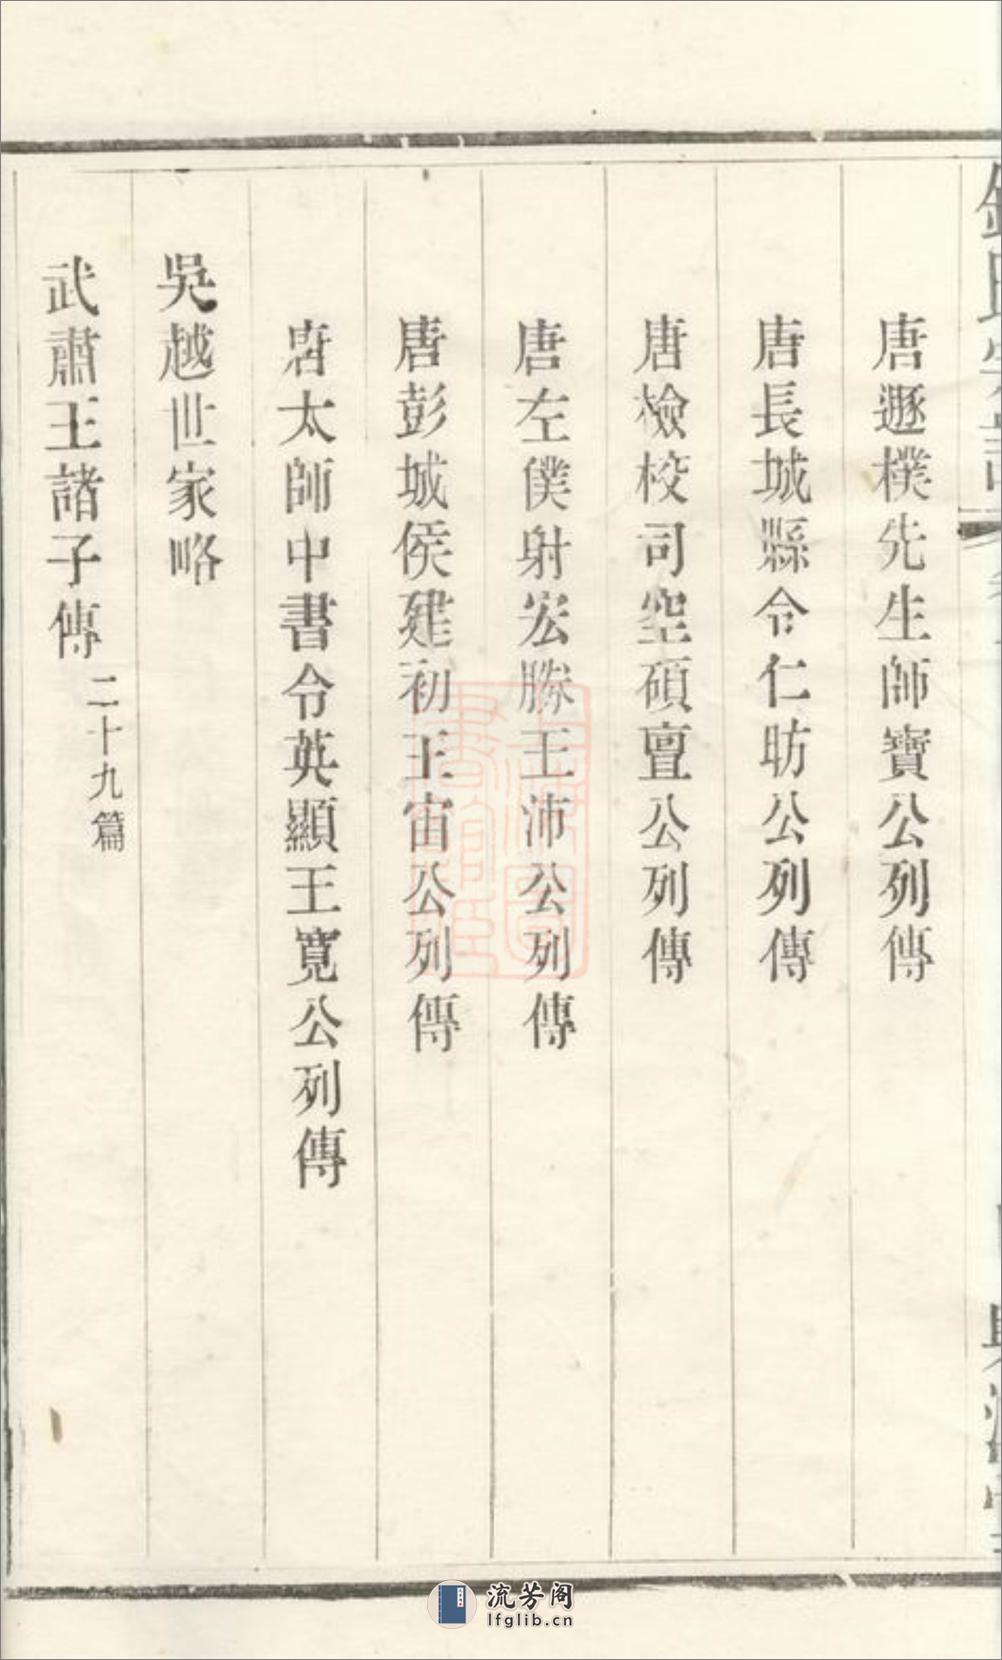 唐遯樸先生師寶公列傳
唐長城縣令仁昉公列傳
唐檢校司空碩亶公列傳
唐左僕射宏勝王沛公列傳
唐彭城侯建初王宙公列傳
唐太師中書令英顯王寬公列傳
吳越世家略
武肅王諸子傳二十九篇
流芳阁
lfglib.cn